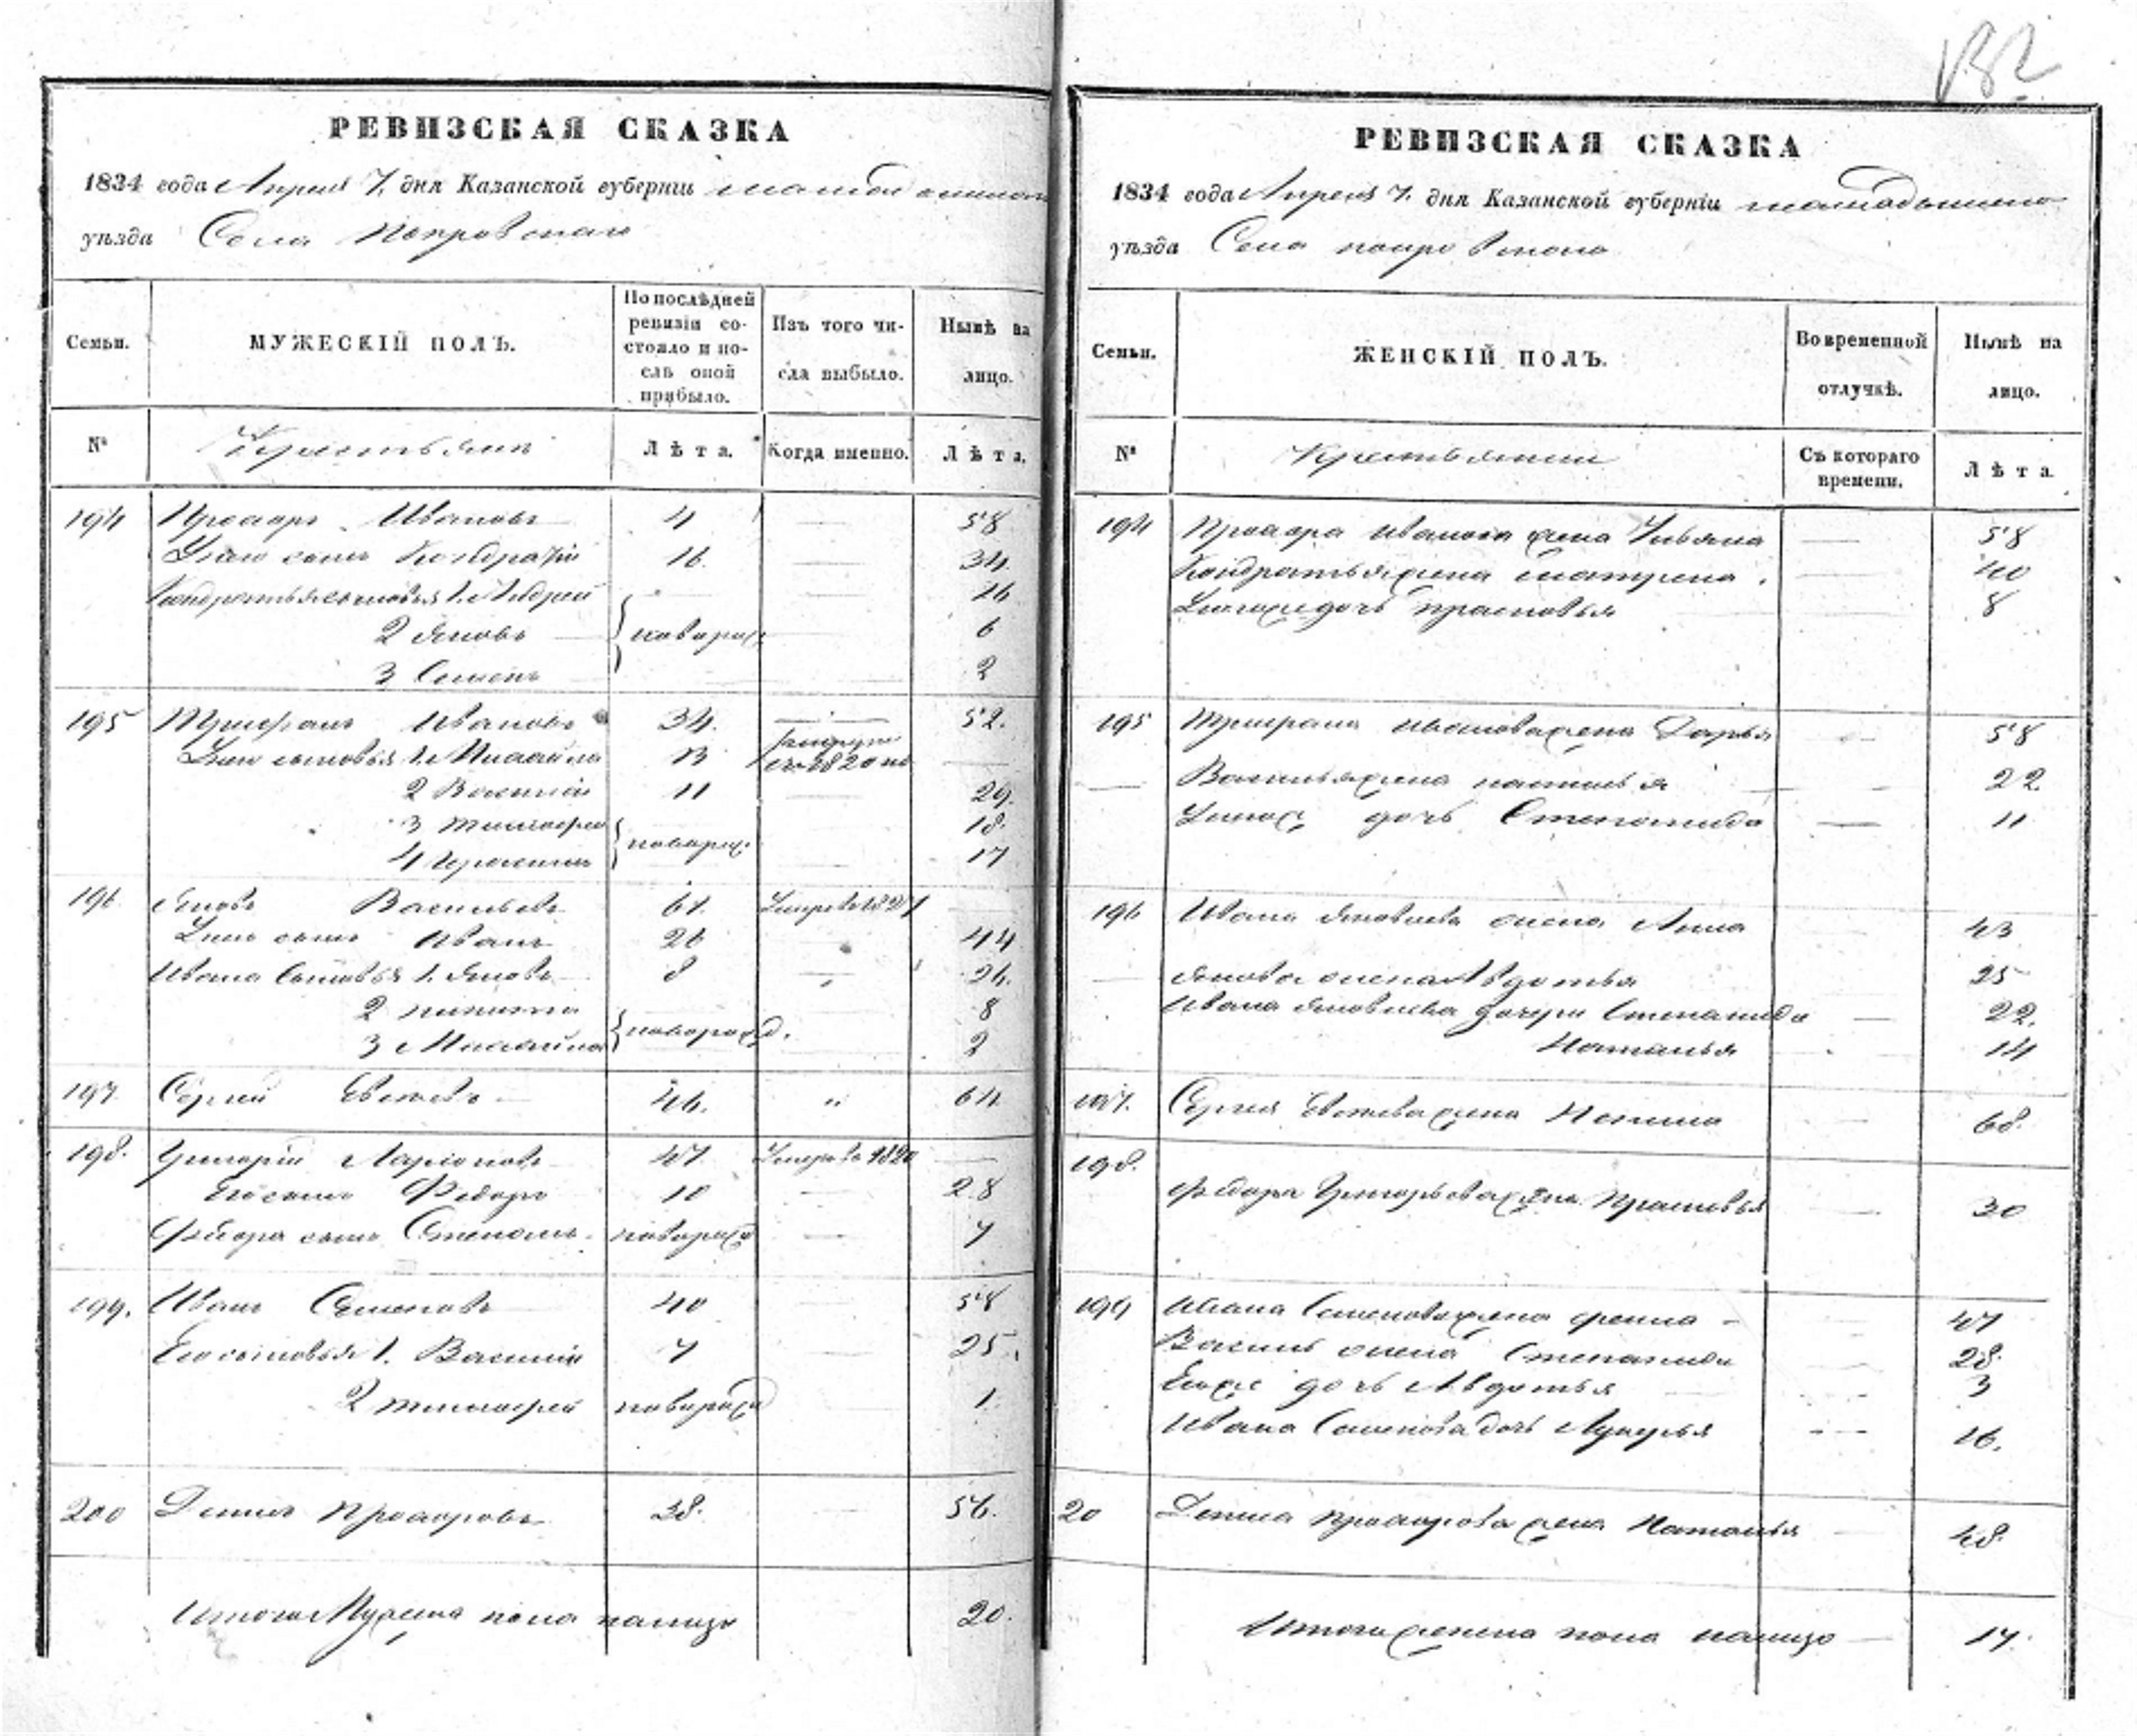 182
РЕВИЗСКАЯ СКАЗКА
1834 года Апреля 7. дня Казанской губерніи
уѣзда Села Покровскаго
Семьи.
МУЖЕСКІЙ ПОЛЪ.
По послѣдней
ревизіи со-
стояло и по-
слѣ оной
прибыло.
Изъ того чи-
сла выбыло.
Нынѣ на
лицо.
№
Крестьяне
Лѣта.
Когда именно.
Лѣта.
194 Прохоръ Ивановъ 4 — 58
Его сынъ Кондратій 16. — 34.
Кондратья сыновья 1. Андрей — 16
2 Яковъ новорож — 6
3 Семенъ — 2
195 Трифанъ Ивановъ 34. — 52.
Его сыновья 1. Михайла 13 1820 —
2 Василий 11 — 29.
3 Тимофей — 18.
4 новорож — 17
196 Яковъ Васильевъ 61. Умре въ 1821 —
Его сынъ Иванъ 26 44
Ивана сыновья 1. Яковъ 8 — 26.
2 Никита 8
3 Михайла новорожд. 2
197. Сергей 46. " 64
198. Григорій Ларіоновъ 47 Умре въ 1820 —
Его сынъ Федоръ 10 — 28
Федора сынъ Степанъ. новорожд — 7
199. Иванъ Семеновъ 40 — 58
Его сыновья 1. Василий 7 — 25.
2 Тимофей новорожд — 1.
200 Денисъ Прохоровъ 38. — 56.
Итого Мужска пола налицо 20.
РЕВИЗСКАЯ СКАЗКА
1834 года Апреля 7. дня Казанской губерніи
уѣзда Села Покровскаго
Семьи.
ЖЕНСКІЙ ПОЛЪ.
Во временной
отлучкѣ.
Нынѣ на
лицо.
№
Съ котораго
времени.
Лѣта
194 Прохора Иванова жена Ульяна — 58
Кондратья жена Матрена. — 40
Его же дочь Прасковья — 8
195 Трифана Иванова жена Дарья — 58
— Василья жена Наталья — 22.
Его ж дочь Степанида — 11
196 Ивана Яковлева жена Анна 43
— Якова жена Авдотья 25
Ивана Яковлева дочери Степанида — 22.
Наталья 14
197. Сергея жена — 68.
198. Федора Григорьева жена Прасковья — 30
199 Ивана Семенова жена — 47
Василья жена Степанида — 28.
Его же дочь Авдотья 3
Ивана Семенова дочь Лукерья — 16.
20 Дениса Прохорова жена Наталья — 48.
Итого женска пола налицо — 17.